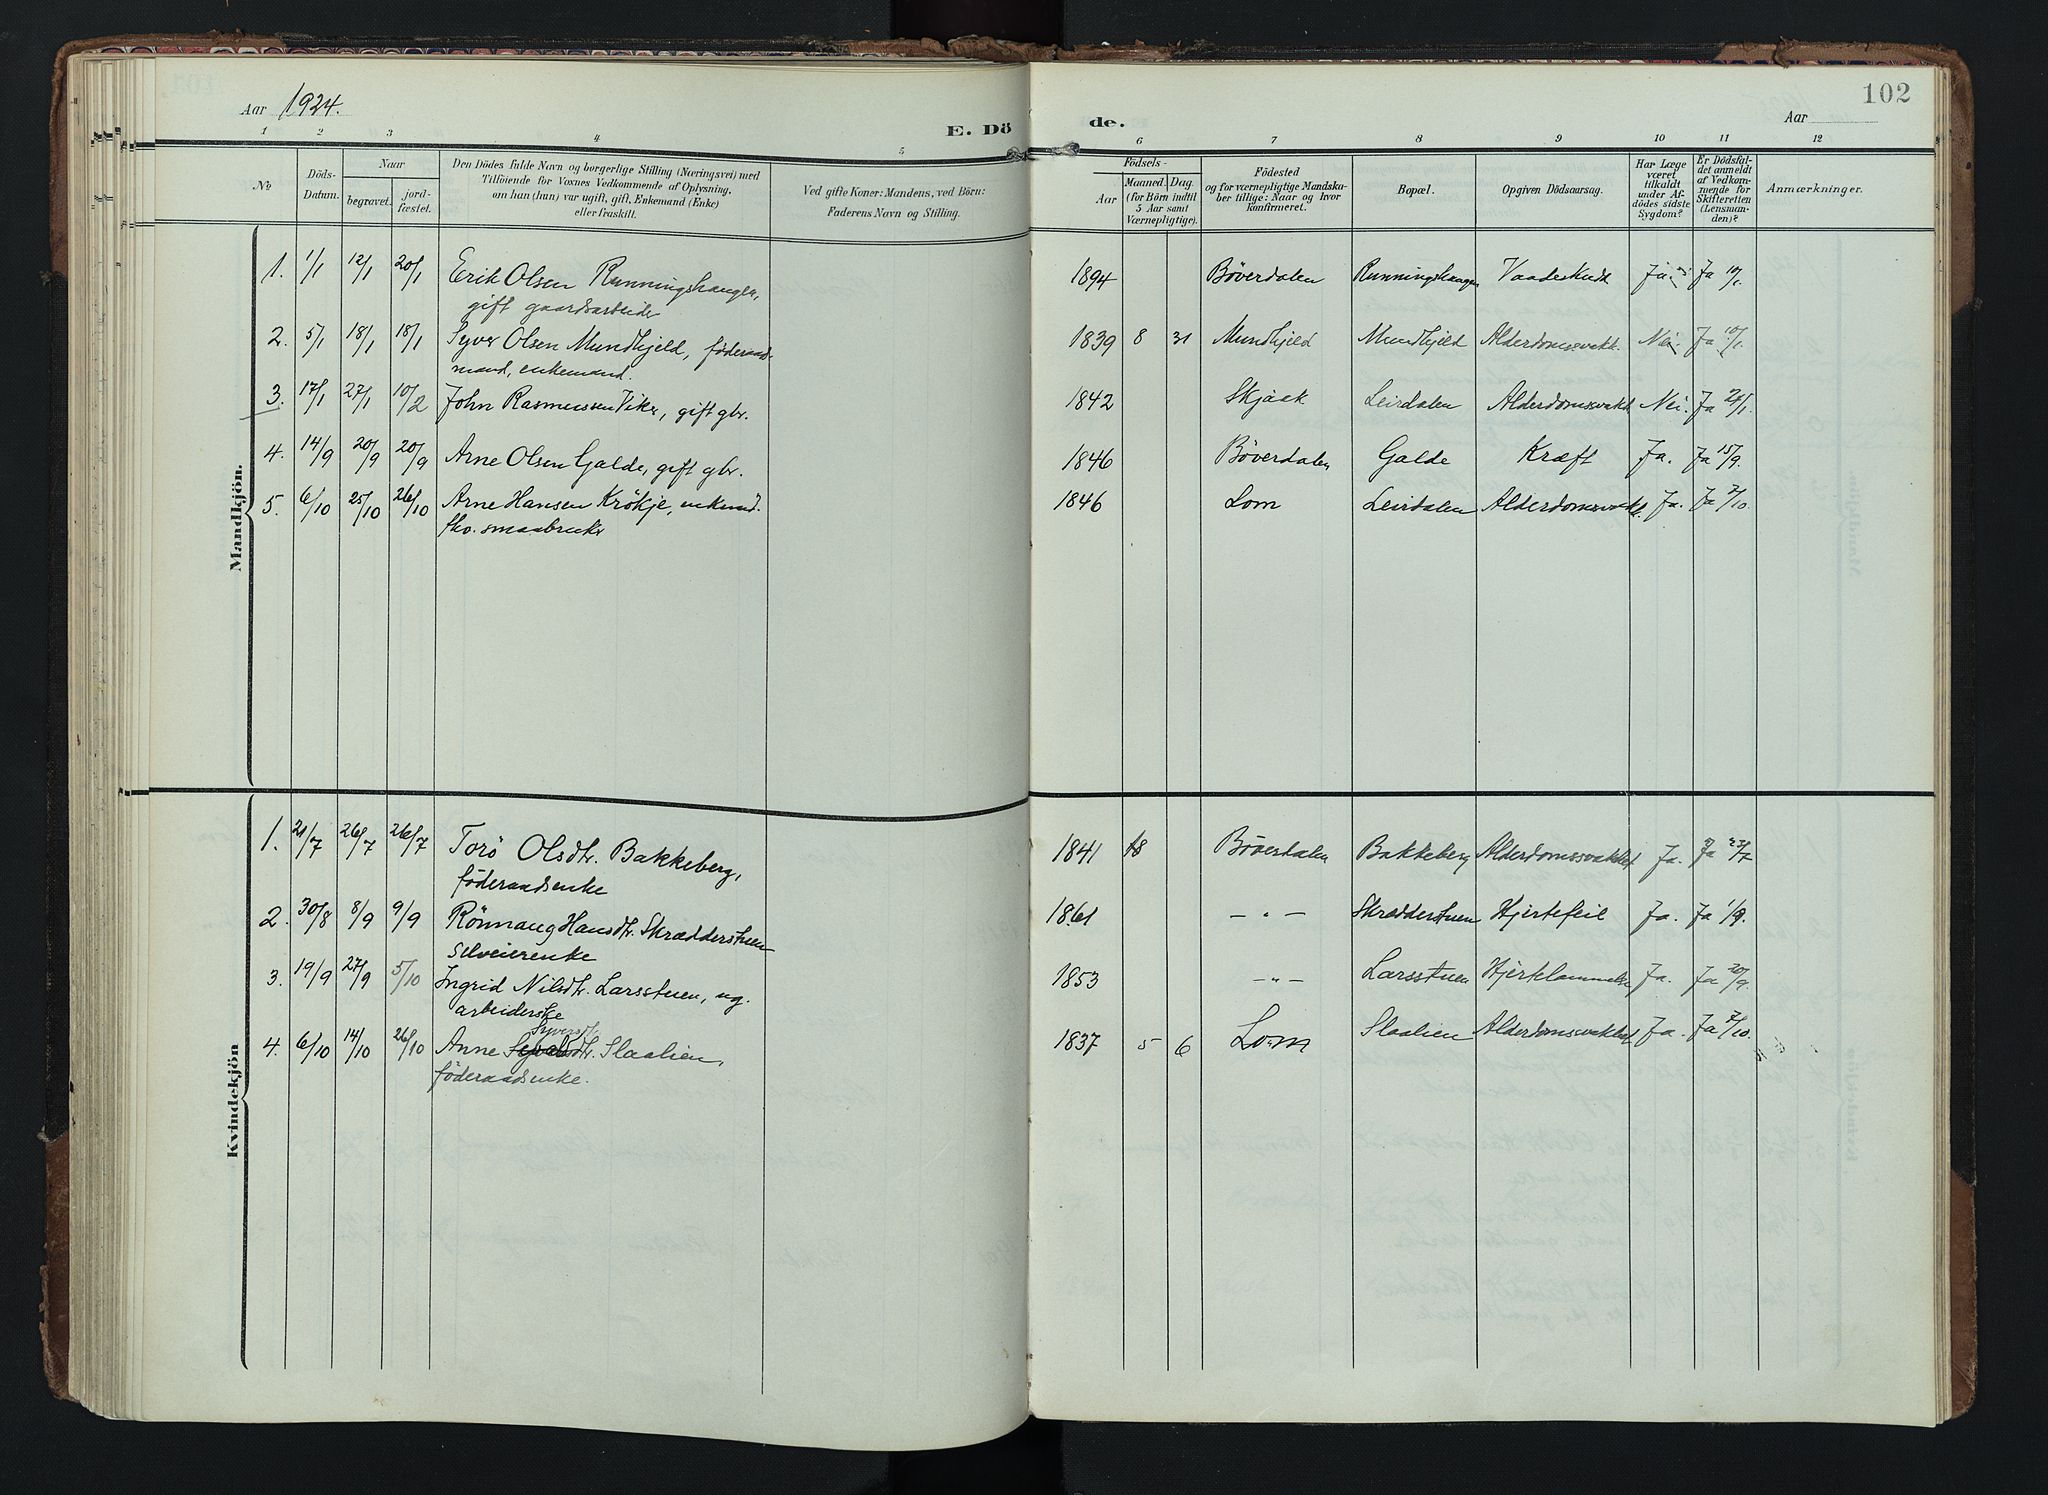 102
Aar 1924.
Aar
E. Dö
de.
1 2 3 4 5 6 7 8 9 10 11 12
№
Döds-
Datum.
Naar
begravet.
jord-
fæstet.
Den Dödes fulde Navn og borgerlige Stilling (Næringsvei) med
Tilföiende for Voxnes Vedkommende af Oplysning,
om han (hun) var ugift, gift, Enkemand (Enke)
eller fraskilt.
Ved gifte Koner: Mandens, ved Börn:
Faderens Navn og Stilling.
Födsels-
Aar
Maaned. Dag.
(for Börn indtil
5 Aar samt
Værnepligtige).
Födested
og for værnepligtige Mandska-
ber tillige: Naar og hvor
konfirmeret.
Bopæl.
Opgiven Dödsaarsag.
Har Læge
været
tilkaldt
under Af-
dödes sidste
Sygdom?
Er Dödsfal-
det anmeldt
af Vedkom-
mende for
Skifteretten
(Lensman-
den)?
Anmærkninger.
Mandkjön.
1. 1/1 12/1 20/1 Erik Olsen Runningshaugen, 1894 Böverdalen Runningshaugen Vaadeskudt Ja. Ja 10/1.
gift gaardsarbeider
2. 5/1 18/1 18/1 Syver Olsen Mundhjeld, föderaad- 1839 8 31 Mundhjeld Mundhjeld Alderdomssvakh. Nei Ja 10/1.
mand, enkemand.
3. 17/1 27/1 10/2 John Rasmussen Vike, gift gbr. 1842 Skjaak Leirdalen Alderdomssvakh Nei. Ja 20/1.
4. 14/9 20/9 20/9 Arne Olsen Galde, gift gbr. 1846 Böverdalen Galde Kræft Ja. Ja 15/9.
5. 6/10 25/10 26/10 Arne Hansen Krökje, enkemd. 1846 Lom Leirdalen Alderdomssvakh. Ja. Ja 7/10.
fhv. smaabruker
Kvindekjön
1. 21/7 26/7 26/7 Torö Olsdtr. Bakkeberg, 1841 Böverdalen Bakkeberg Alderdomssvakhet Ja. Ja 23/7
föderaadsenke
2. 30/8 8/9 9/9 Rönnaug Hansdtr. Skrædderstuen 1861 — " — Skrædderstuen Hjertefeil Ja. Ja 1/9.
selveierenke
3. 19/9 27/9 5/10 Ingrid Nilsdtr. Larsstuen, ug. 1853 — " — Larsstuen Hjertelammelse Ja. Ja 20/9.
arbeiderske
Syversdtr.
4. 6/10 14/10 26/10 Anne Slaalien, 1837 5 6 Lom Slaalien Alderdomssvakhet Ja. Ja 7/10.
föderaadsenke.